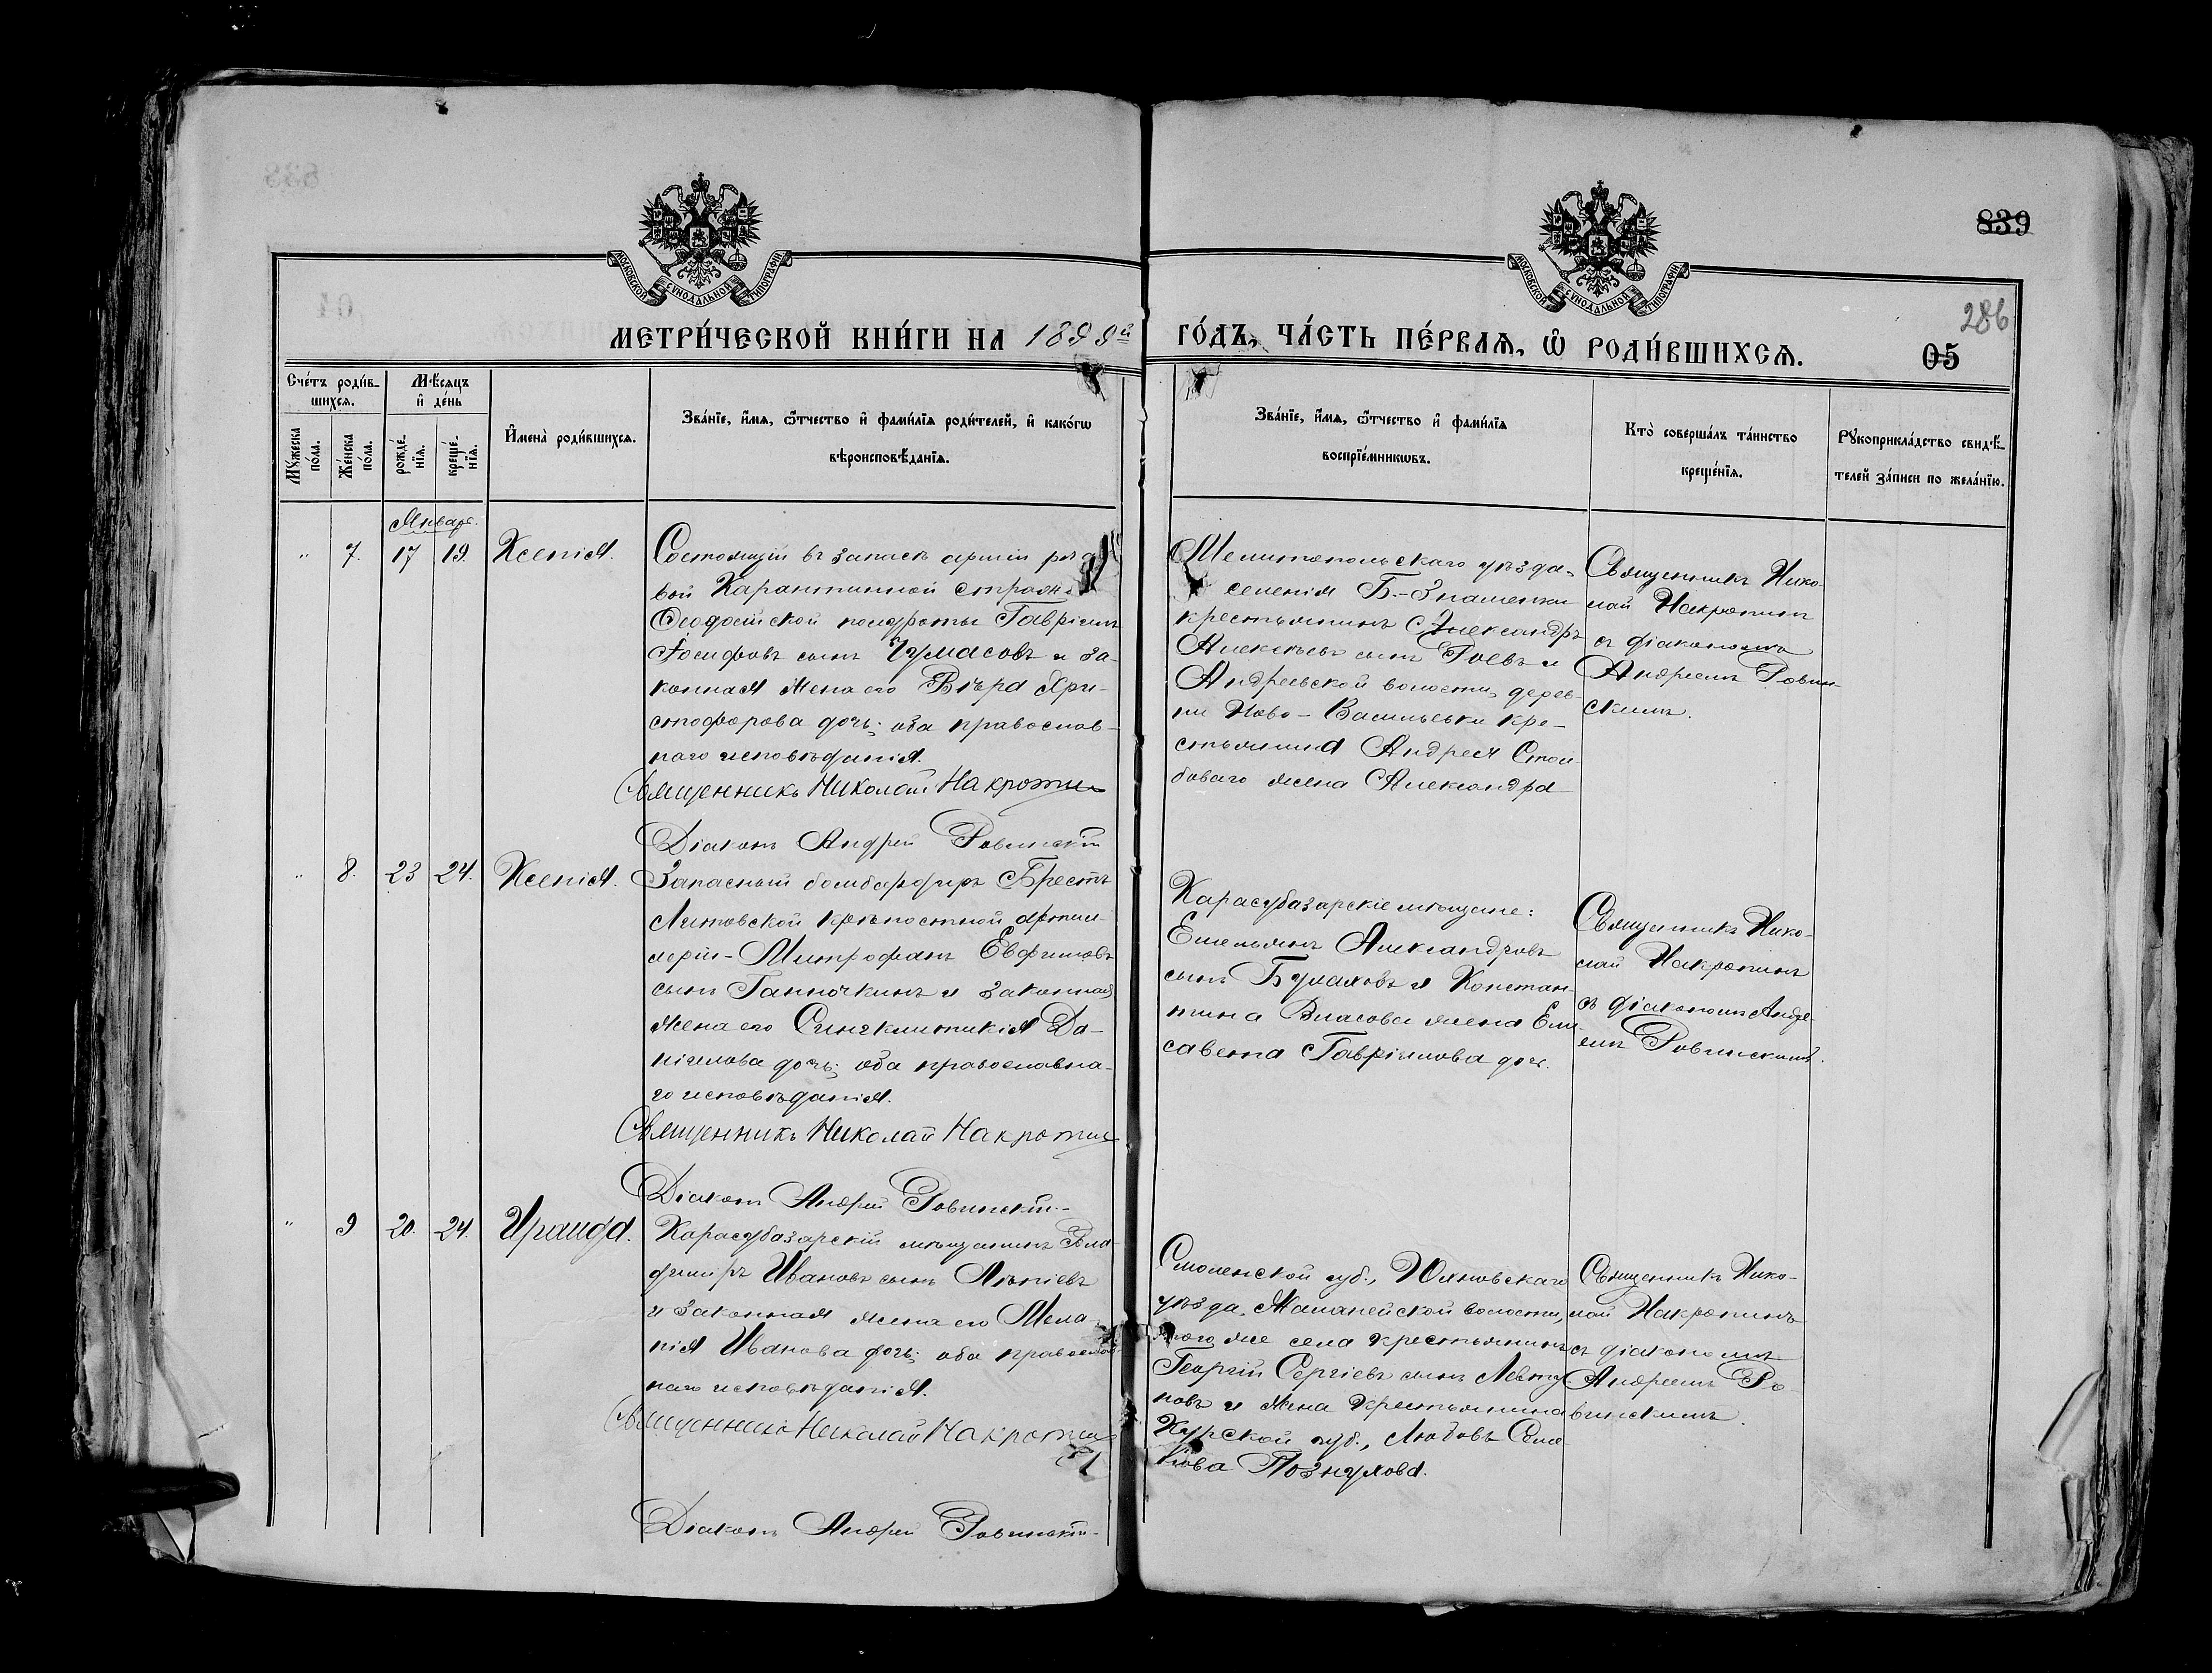 839
286
05
МОСКОВСКОЙ СѴНОДАЛЬНОЙ ТИПОГРАФІИ
МОСКОВСКОЙ СѴНОДАЛЬНОЙ ТИПОГРАФІИ
МЕТРИ́ЧЕСКОЙ КНИ́ГИ НА 1899й
ГО́ДЪ, ЧА́СТЬ ПЕ́РВАѦ, Ѡ РОДИ́ВШИХСѦ.
Сче́тъ роди́в-
шихся.
Мѣ́сяцъ
и де́нь
Мꙋжеска
по́ла.
Же́нска
по́ла.
рожде́-
нїя.
креще́-
нїя.
Имена̀ роди́вшихся.
Зва́нїе, и́мя, ѻ́тчество и фами́лїя роди́телей, и како́гѡ
вѣроисповѣ́данїя.
Зва́нїе, и́мя, ѻ́тчество и фами́лїя
воспрїе́мникѡвъ.
Кто̀ соверша́лъ та́инство
креще́нїя.
Рꙋкоприкла́дство свидѣ́-
телей за́писи по жела́нїю.
Январь.
" 7. 17 19. Ксенія.
Состоящій въ запасѣ арміи рядо
вой Карантинной стражи
Ѳеодосійской полуроты Гавріилъ
Іосифовъ сынъ Чумасовъ и за-
конная жена его Вѣра Хри-
стофорова дочь; оба православ-
наго исповѣданія.
Священникъ Николай Накропин
Діаконъ Андрей Ровинскій
Мелитопольскаго уѣзда,
селенія Б.-Знаменки
крестьянинъ Александръ
Алексѣевъ сынъ Гоевъ и
Андреевской волости, дерев-
ни Ново-Васильевки кре-
стьянина Андрея Стол
боваго жена Александра
Священникъ Нико-
лай Накропинъ
съ діакономъ
Андреемъ Ровин-
скимъ.
" 8. 23 24. Ксенія.
Запасный бомбардиръ Брестъ
Литовской крѣпостной артил-
леріи - Митрофанъ Евфимовъ
сынъ Ганночкинъ и законная
жена его Синклитикія Да-
ніилова дочь; оба православна-
го исповѣданія.
Священникъ Николай Накропин
Діаконъ Андрей Ровинскій
Карасубазарскіе мѣщане:
Емельянъ Александровъ
сынъ Булаховъ и Констан-
тина Власова жена Ели-
савета Гавріилова дочь.
Священникъ Нико-
лай Накропинъ
съ діакономъ Андре-
емъ Ровинскимъ.
" 9 20. 24. Ираида.
Карасубазарскій мѣщанинъ Вла-
диміръ Ивановъ сынъ
и законная жена его Мела-
нія Иванова дочь; оба православ
наго исповѣданія.
Священникъ Николай Накропин
Діаконъ Андрей Ровинскій
Смоленской губ., Юхновскаго
уѣзда, волости,
того же села крестьянинъ
Георгій Сергіевъ сынъ Левту
новъ и жена крестьянина
Курской губ., Любовь
Познухова.
Священникъ Нико-
лай Накропинъ
съ діакономъ
Андреемъ Ро-
винскимъ.